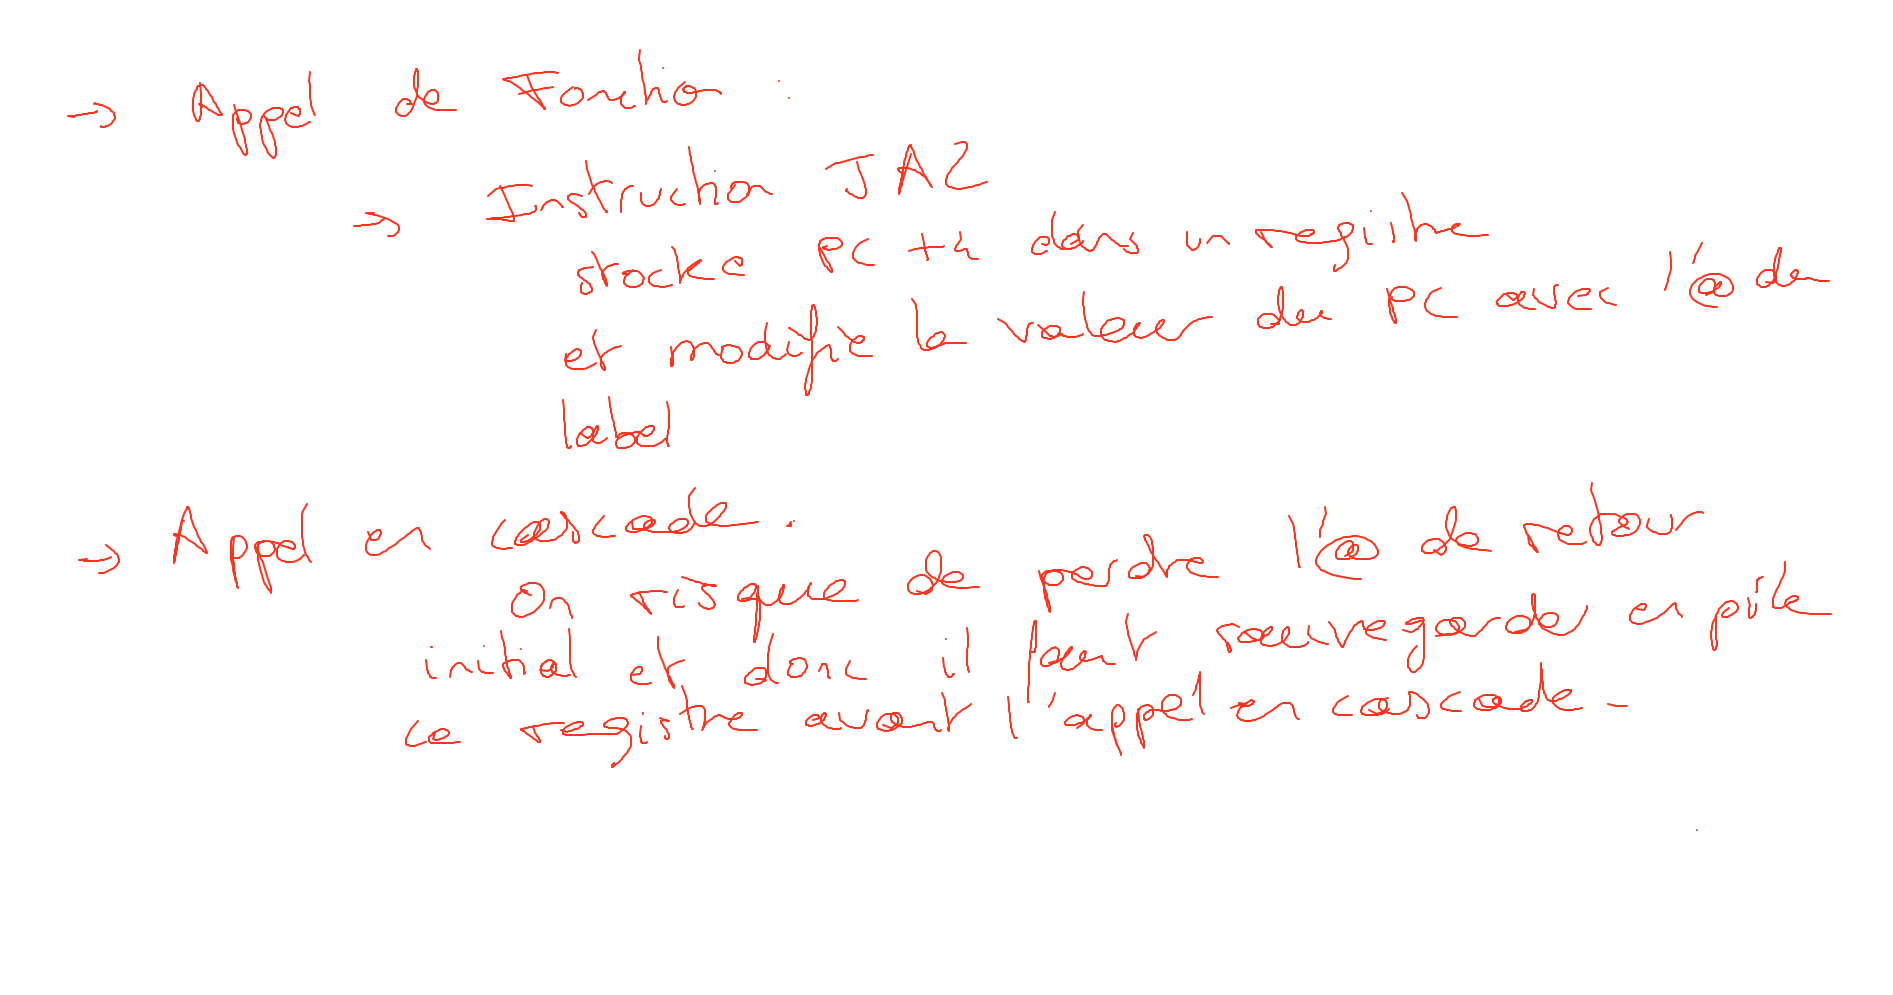 → Appel de Fonction :
→ Instruction JAL
stocke PC +4 dans un registre
et modifie la valeur du PC avec l'@ du
label
→ Appel en cascade.
On risque de perdre l'@ de retour
initial et donc il faut sauvegarder en pile
ce registre avant l'appel en cascade.